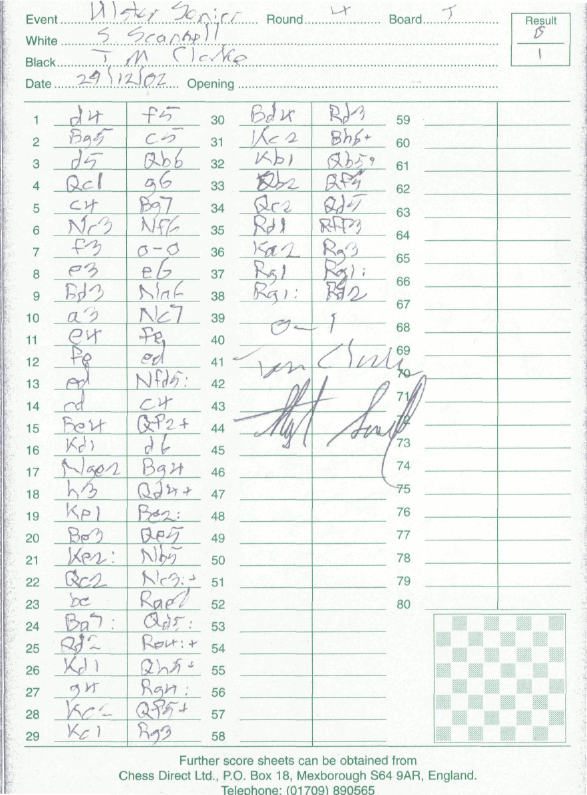 Event Ulster Senior Round 4 Board 5 Result
White S Scannell 0
Black T M Clarke 1
Date 29/12/02 Opening
1 d4 f5 30 Bd4 Rd3 59
2 Bg5 c5 31 Kc2 Bh6+ 60
3 d5 Qb6 32 Kb1 Qb5+ 61
4 Qc1 g6 33 Qb2 Qf5 62
5 c4 Bg7 34 Qc2 Qd5 63
6 Nc3 Nf6 35 Rd1 Rff3 64
7 f3 0-0 36 Ka2 Rg3 65
8 e3 e6 37 Rg1 Rg1: 66
9 Bd3 Nna6 38 Rg1: Rd2 67
10 a3 Nc7 39 0-1 68
11 e4 fe 40
12 fe ed 41 69
13 ed Nfd5: 42 70
14 cd c4 43 71
15 Be4 Qf2+ 44 72
16 Kd1 d6 45 73
17 Nge2 Bg4 46 74
18 h3 Qd4+ 47 75
19 Ke1 Be2: 48 76
20 Be3 Qe5 49 77
21 Ke2: Nb5 50 78
22 Qc2 Nc3:+ 51 79
23 bc Rae8 52 80
24 Ba7: Qd5: 53
25 Qd2 Re4:+ 54
26 Kd1 Qh5+ 55
27 g4 Rg4: 56
28 Kc2 Qf5+ 57
29 Kc1 Rg3 58
Further score sheets can be obtained from
Chess Direct Ltd., P.O. Box 18, Mexborough S64 9AR, England.
Telephone: (01709) 890565